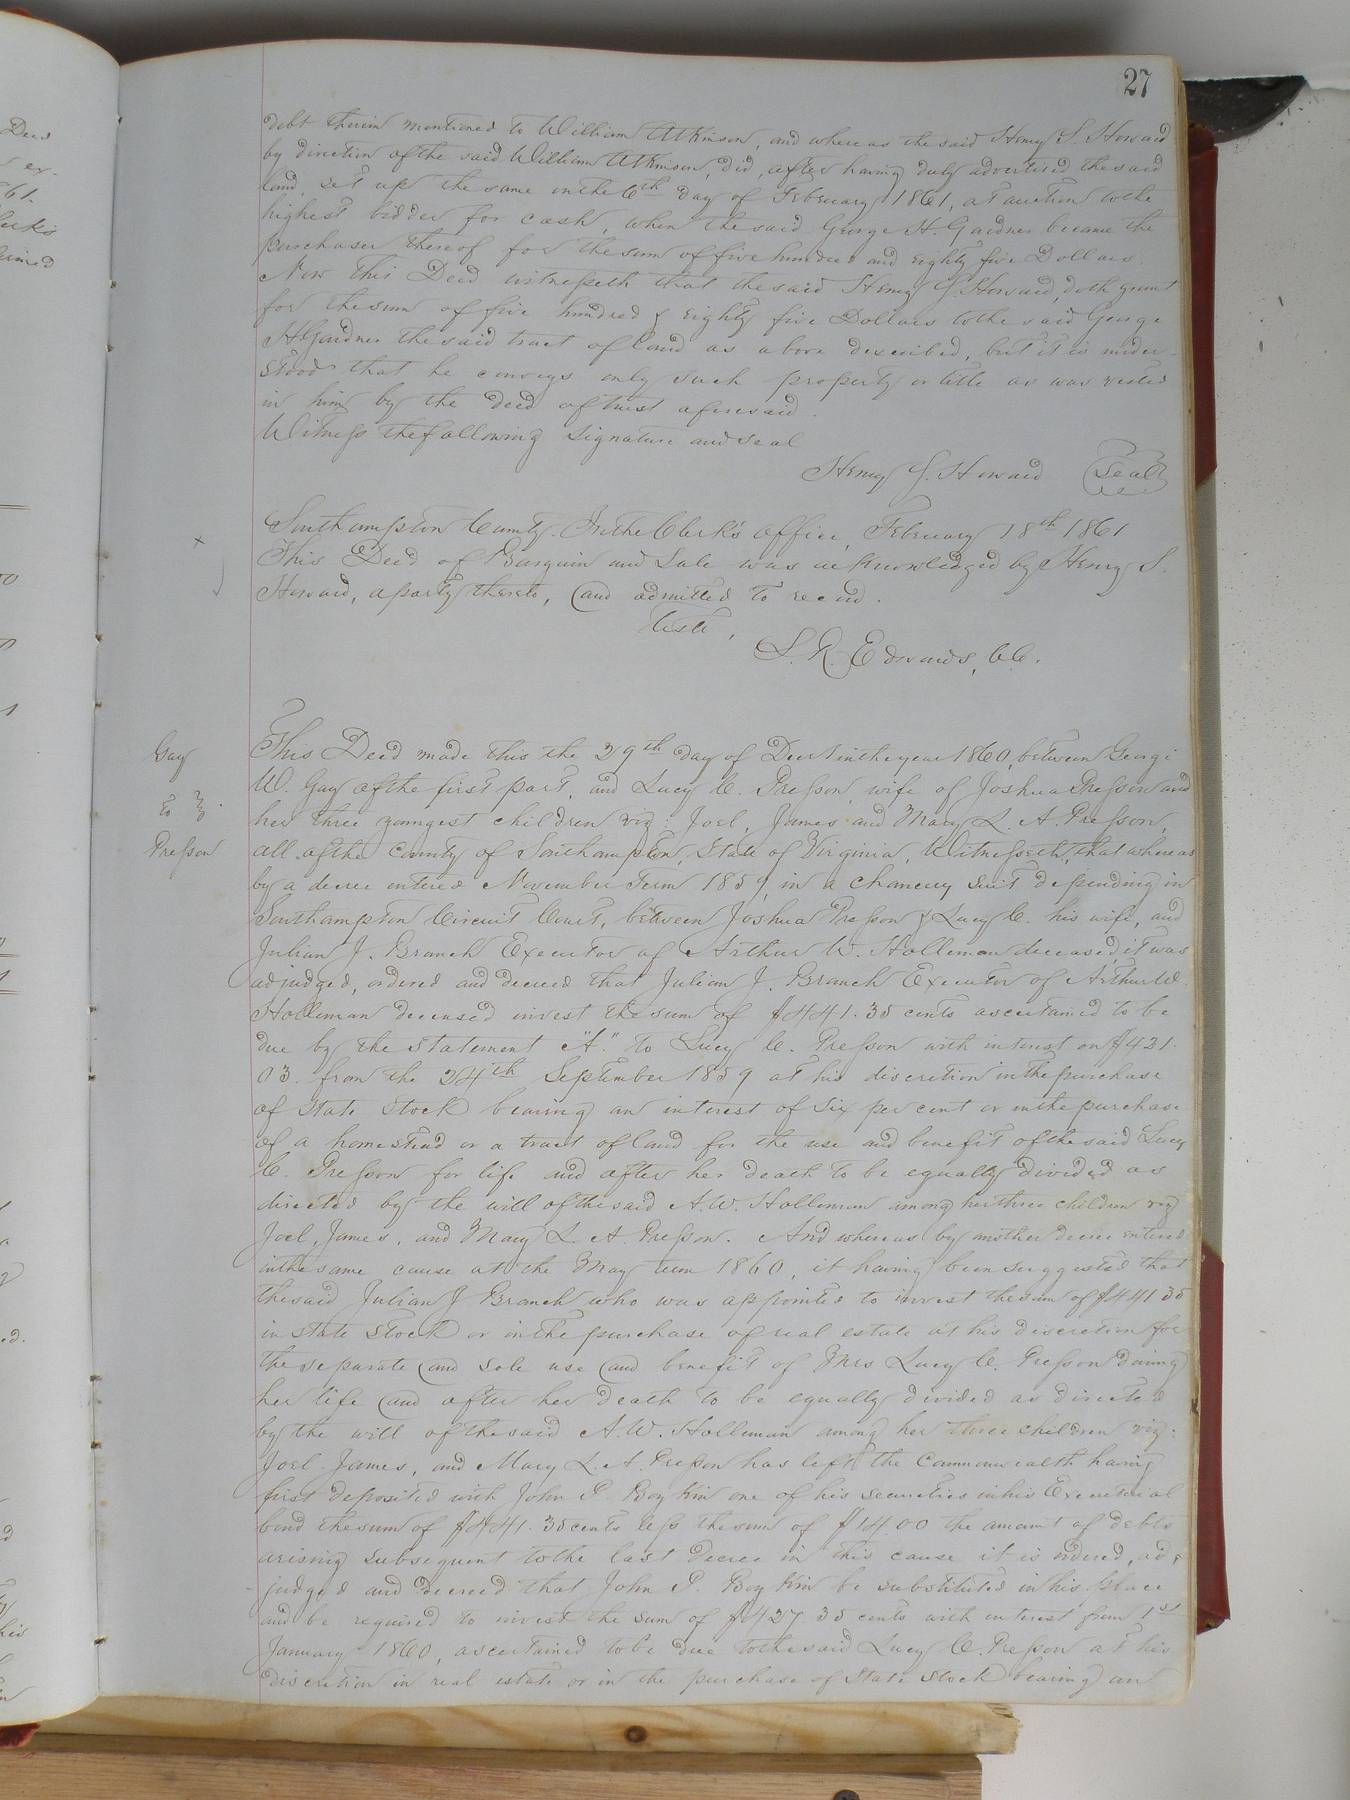 27
debt therein mentioned to William Atkinson, and whereas the said Henry S. Howard
by direction of the said William Atkinson, did, after having duly advertised the said
land, set up the same on the 6th day of February 1861, at auction to the
highest bidder for cash, when the said George H. Gardner became the
purchaser thereof for the sum of five hundred and eighty five Dollars.
Now this Deed witnesseth that the said Henry S. Howard, doth grant
for the sum of five hundred & eighty five Dollars to the said George
H Gardner the said tract of land as above described, but it is under-
stood that he conveys only such property or title as was vested
in him by the deed of trust aforesaid.
Witness the following signature and seal
Henry S. Howard Seal
Southampton County. In the Clerk's office, February 18th 1861
This Deed of Bargain and Sale was acknowledged by Henry S.
Howard, a party thereto, and admitted to record.
Teste,
L. R. Edwards, C.C.
Gay
to
Presson
This Deed made this the 29th day of Decr in the year 1860, between George
W. Gay of the first part, and Lucy C. Presson, wife of Joshua Presson and
her three youngest children viz: Joel, James and Mary L. A. Presson,
all of the County of Southampton, State of Virginia, Witnesseth, that whereas
by a decree entered November Term 1859, in a chancery suit depending in
Southampton Circuit Court, between Joshua Presson & Lucy C. his wife, and
Julian J. Branch Executor of Arthur W. Holleman deceased, it was
adjudged, ordered and decreed that Julian J. Branch Executor of Arthur W.
Holleman deceased invest the sum of $441.35 cents ascertained to be
due by the statement "A." to Lucy C. Presson with interest on $421.
03. from the 24th September 1859 at his discretion in the purchase
of State Stock bearing an interest of six per cent or in the purchase
of a homestead or a tract of land for the use and benefit of the said Lucy
C. Presson for life and after her death to be equally divided as
directed by the will of the said A. W. Holleman among her three children viz
Joel, James, and Mary L. A. Presson. And whereas by another decree entered
in the same cause at the May term 1860, it having been suggested that
the said Julian J Branch who was appointed to invest the sum of $441 35
in State Stock or in the purchase of real estate at his discretion for
the separate and sole use and benefit of Mrs Lucy C. Presson during
her life and after her death to be equally divided as directed
by the will of the said A. W. Holleman among her three children viz:
Joel James, and Mary L. A. Presson has left the Commonwealth having
first deposited with John P. Boykin one of his securities in his Executorial
bond the sum of $441.35 cents less the sum of $14.00 the amount of debts
arising subsequent to the last decree in this cause it is ordered, ad-
judged and decreed that John P. Boykin be substituted in his place
and be required to invest the sum of $427 35 cents with interest from 1st
January 1860, ascertained to be due to the said Lucy C. Presson at his
discretion in real estate or in the purchase of State Stock bearing an